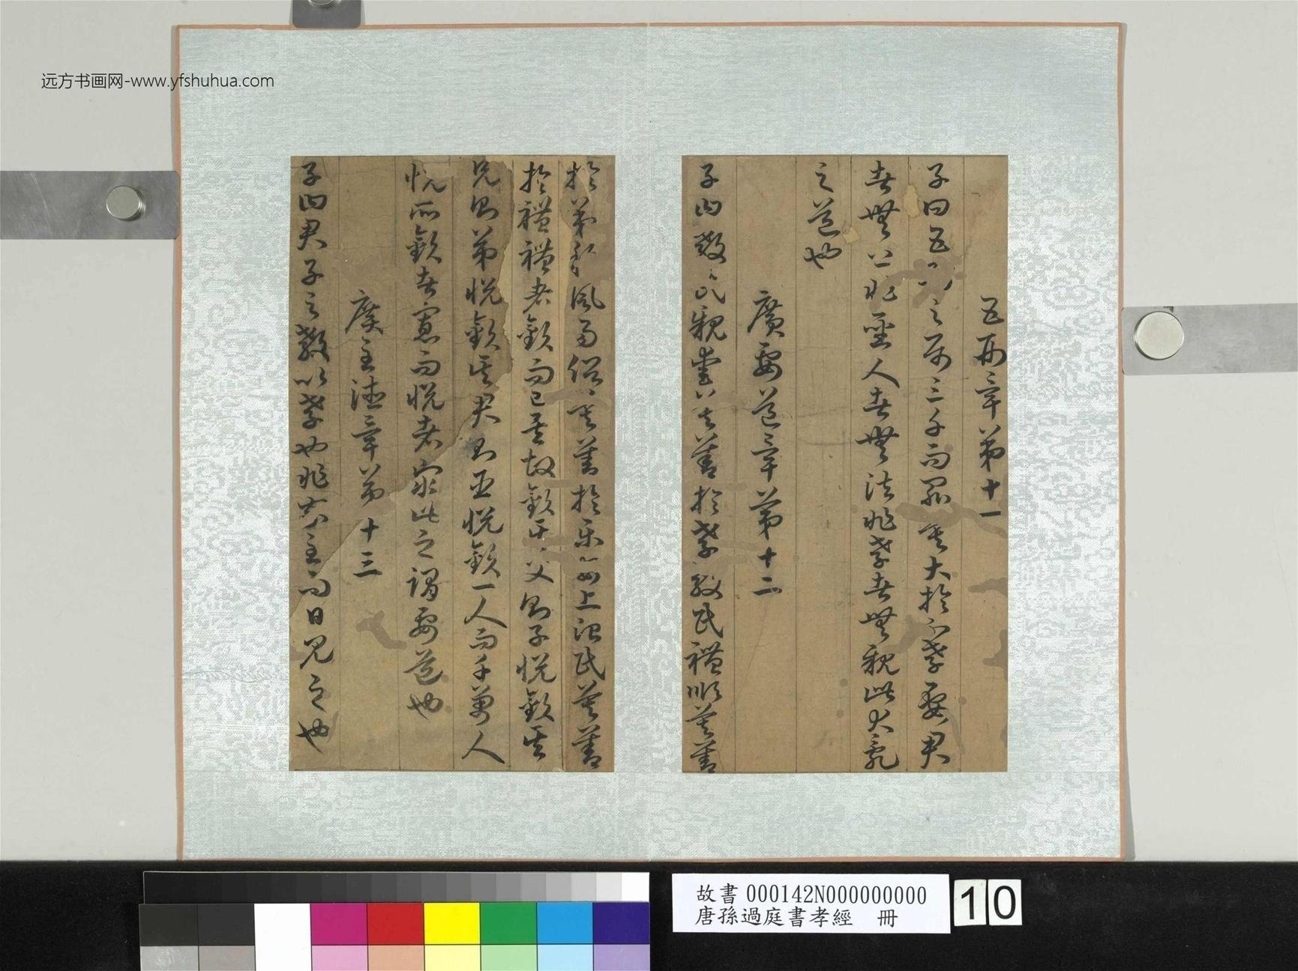 远方书画网-www.yfshuhua.com
五刑章第十一
子曰五刑之属三千而罪莫大於不孝要君
者無上非聖人者無法非孝者無親此大乱
之道也
廣要道章第十二
子曰教民親愛莫善於孝教民禮順莫善
於弟移風易俗莫善於樂安上治民莫善
於禮禮者敬而已矣故敬其父則子悦敬其
兄則弟悦敬其君則臣悦敬一人而千萬人
悦所敬者寡而悦者衆此之謂要道也
廣至德章第十三
子曰君子之教以孝也非家至而日見之也
故書 000142N000000000
唐孫過庭書孝經 冊
10